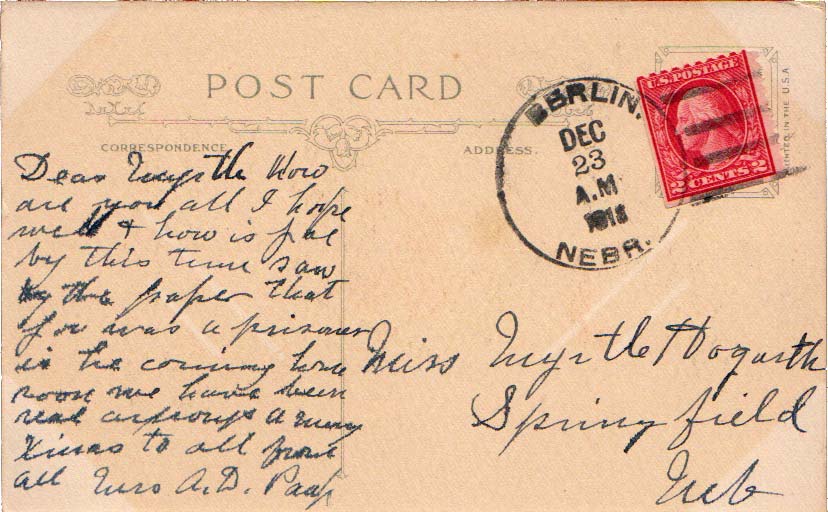 POST CARD
CORRESPONDENCE
ADDRESS.
BERLIN.
DEC
23
A.M
1918
NEBR.
U.S. POSTAGE
2 CENTS 2
PRINTED IN THE U.S.A
Dear Myrtle How
are you all I hope
well & how is Joe
by this time saw
by the paper that
Joe was a prisoner
is he coming home
soon we have been
real anxious a merry
Xmas to all from
all Mrs A.D. Paap
Miss Myrtle Hogarth
Springfield
Neb